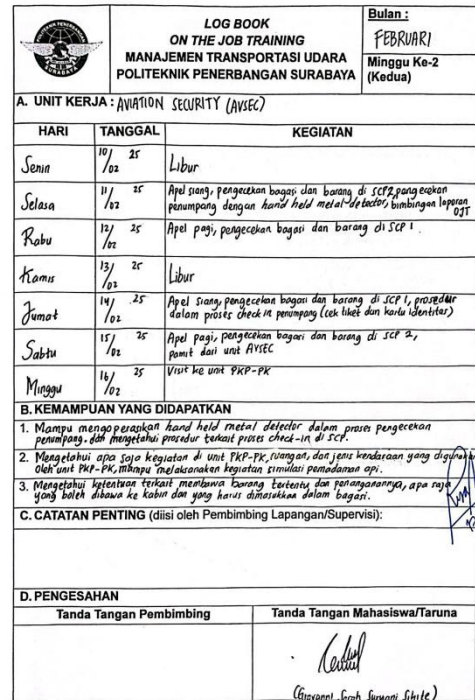 POLITEKNIK PENERBANGAN
SURABAYA
LOG BOOK
ON THE JOB TRAINING
MANAJEMEN TRANSPORTASI UDARA
POLITEKNIK PENERBANGAN SURABAYA
Bulan :
FEBRUARI
Minggu Ke-2
(Kedua)
A. UNIT KERJA : AVIATION SECURITY (AVSEC)
HARI TANGGAL KEGIATAN
Senin 10/02 25 Libur
Selasa 11/02 25 Apel siang, pengecekan bagasi dan barang di SCP2, pengecekan
penumpang dengan hand held metal detector, bimbingan laporan
OJT
Rabu 12/02 25 Apel pagi, pengecekan bagasi dan barang di SCP 1.
Kamis 13/02 25 Libur
Jumat 14/02 25 Apel siang, pengecekan bagasi dan barang di SCP 1, prosedur
dalam proses check in penumpang (cek tiket dan kartu identitas)
Sabtu 15/02 25 Apel pagi, pengecekan bagasi dan barang di SCP 2,
pamit dari unit AVSEC
Minggu 16/02 25 Visit ke unit PKP-PK
B. KEMAMPUAN YANG DIDAPATKAN
1. Mampu mengoperasikan hand held metal detector dalam proses pengecekan
penumpang. dan mengetahui prosedur terkait proses check-in di SCP.
2. Mengetahui apa saja kegiatan di unit PKP-PK, ruangan, dan jenis kendaraan yang digunakan
oleh unit PKP-PK, mampu melaksanakan kegiatan simulasi pemadaman api.
3. Mengetahui ketentuan terkait membawa barang tertentu dan penanganannya, apa saja
yang boleh dibawa ke kabin dan yang harus dimasukkan dalam bagasi.
C. CATATAN PENTING (diisi oleh Pembimbing Lapangan/Supervisi):
D. PENGESAHAN
Tanda Tangan Pembimbing Tanda Tangan Mahasiswa/Taruna